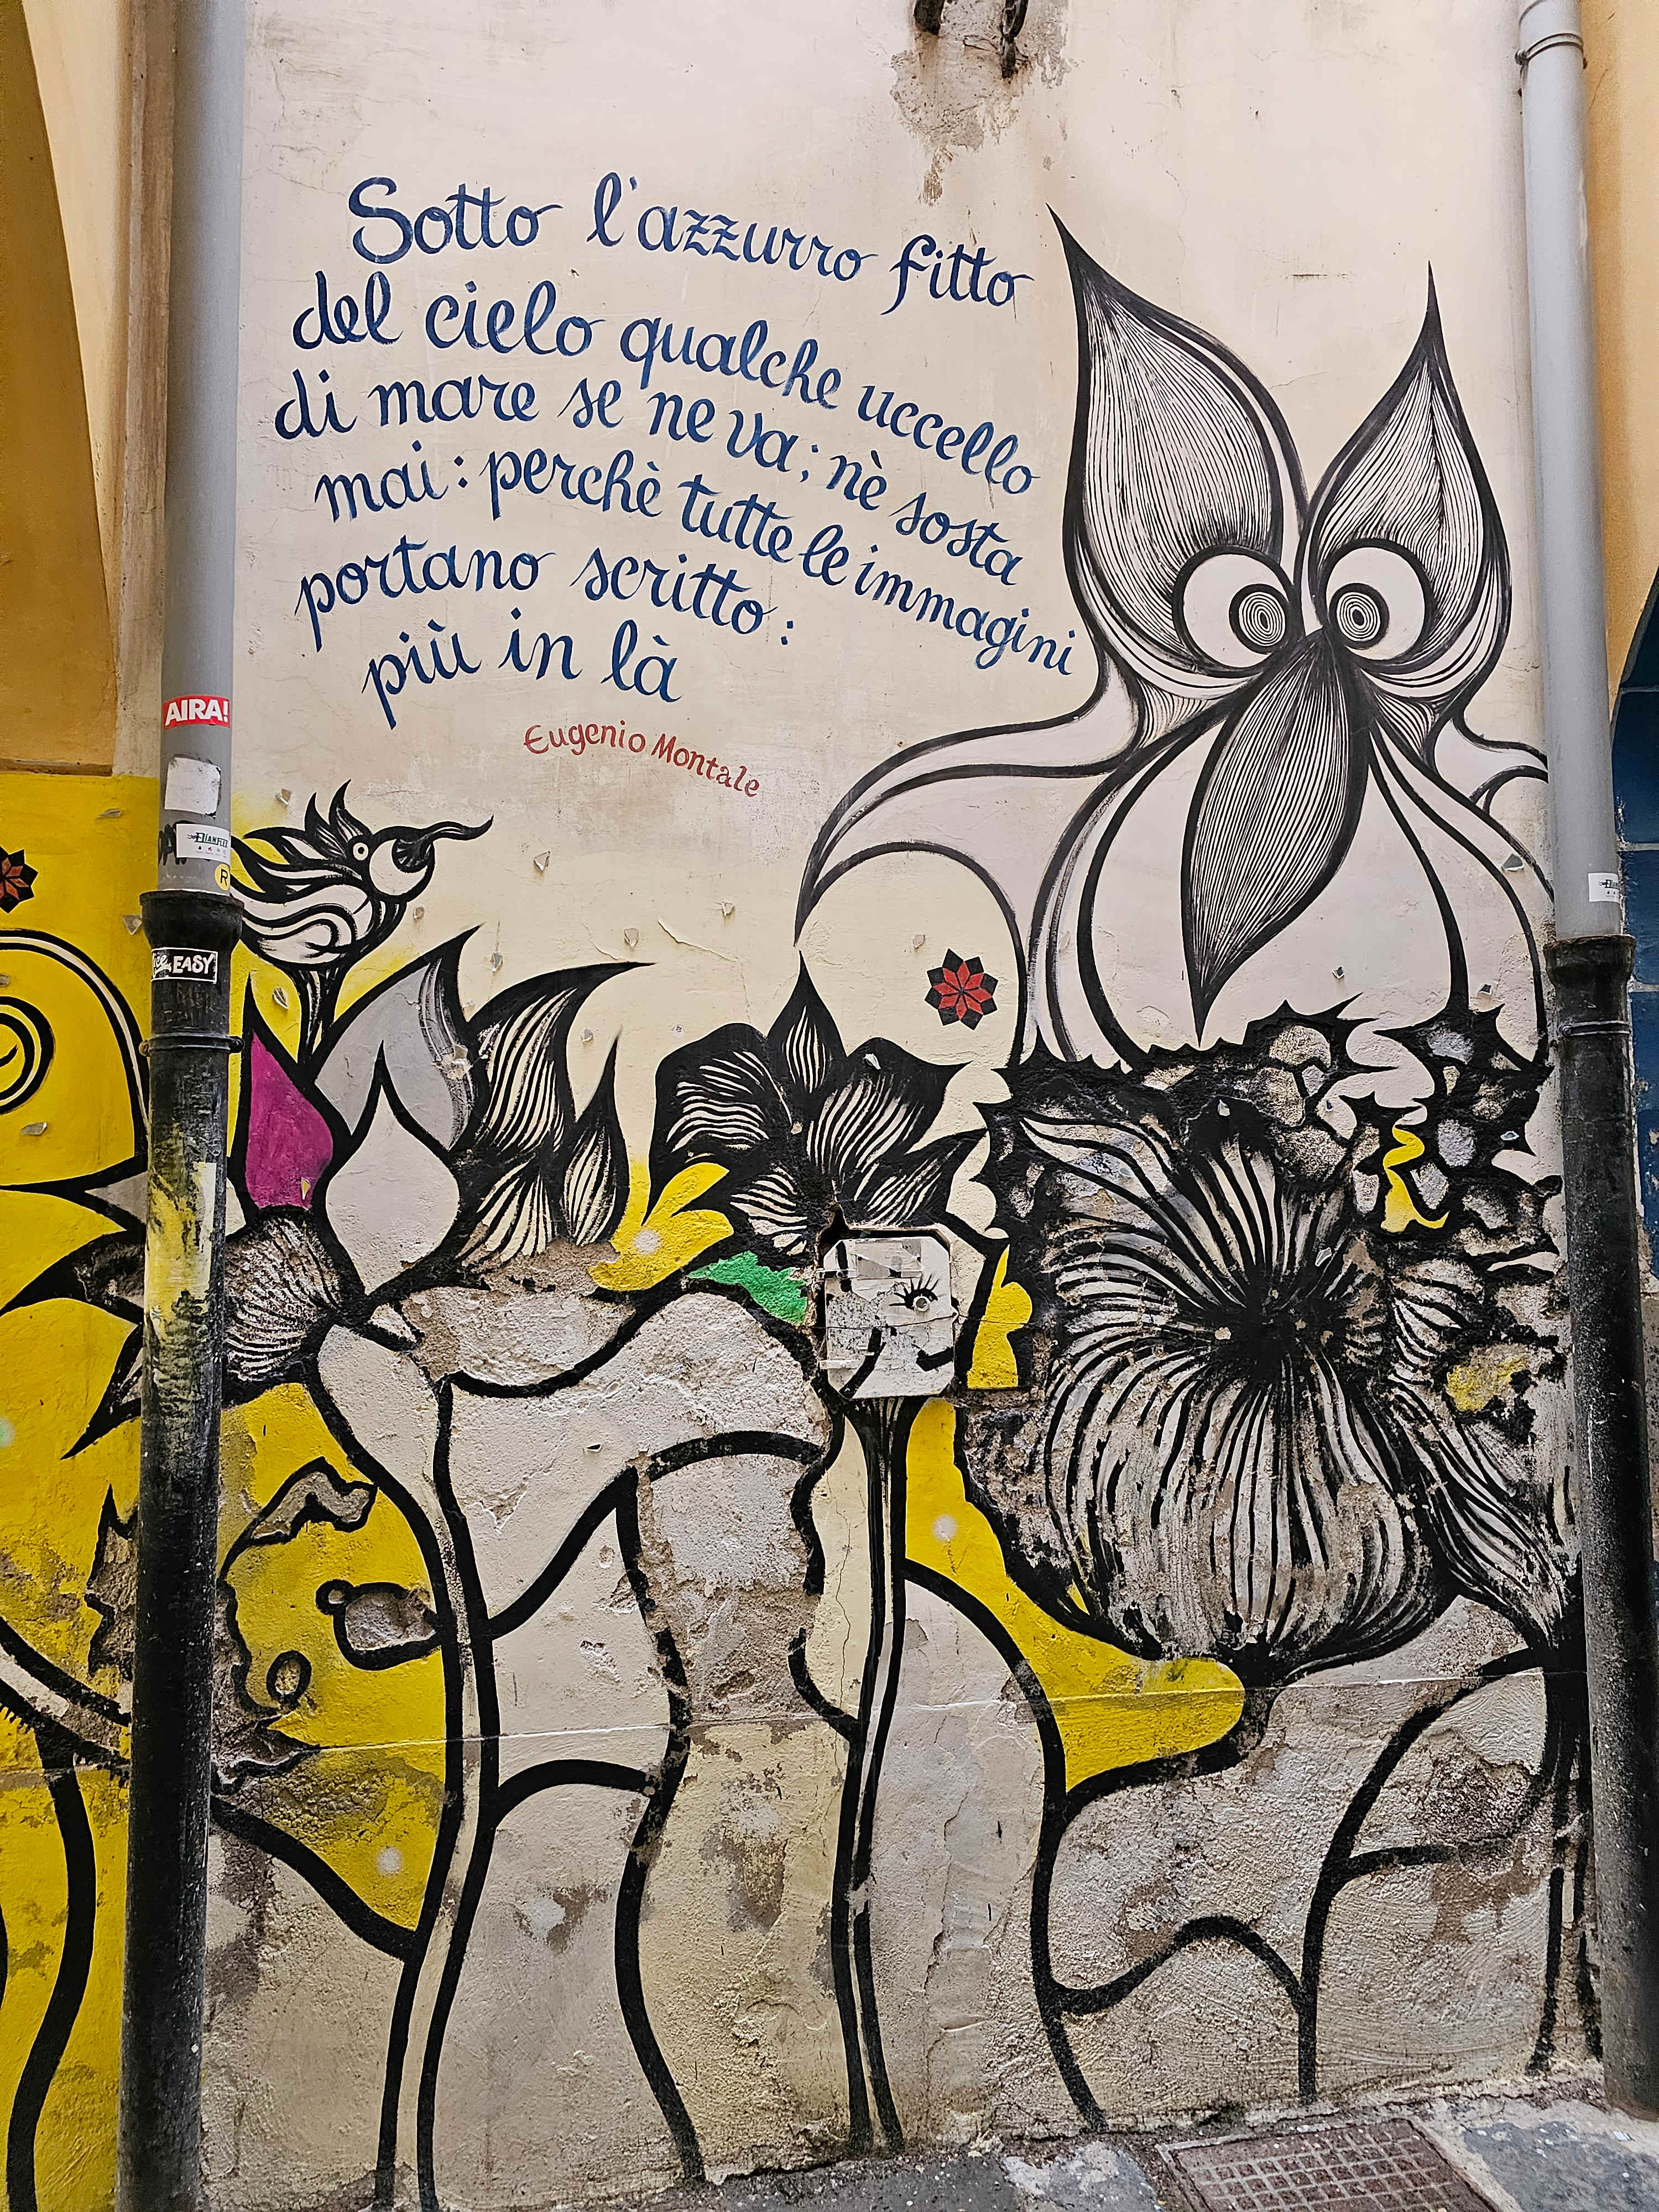 Sotto l'azzurro fitto
del cielo qualche uccello
di mare se ne va; nè sosta
mai: perchè tutte le immagini
portano scritto:
più in là
Eugenio Montale
AIRA!
R
EASY